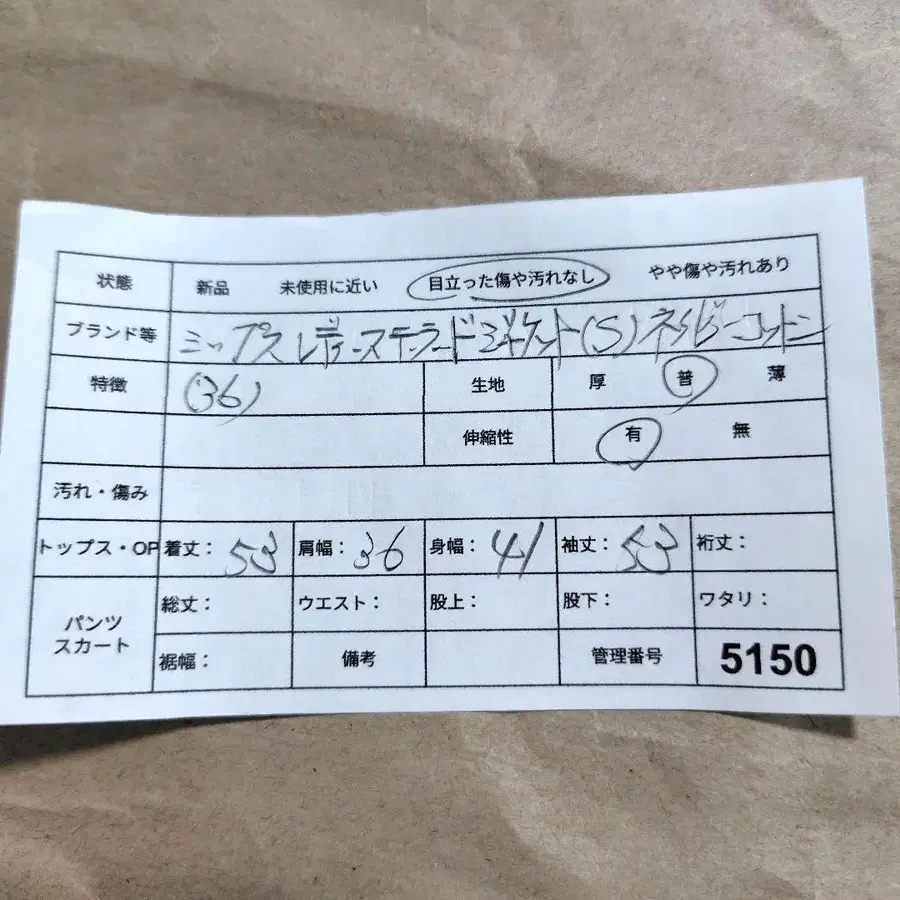 状態 新品 未使用に近い 目立った傷や汚れなし やや傷や汚れあり
ブランド等 ミップス レディース テーラードジャケット(S)ネイビー コットン
特徴 (36) 生地 厚 普 薄
伸縮性 有 無
汚れ・傷み
トップス・OP 着丈: 53 肩幅: 36 身幅: 41 袖丈: 53 裄丈:
パンツ スカート 総丈: ウエスト: 股上: 股下: ワタリ:
裾幅: 備考 管理番号 5150